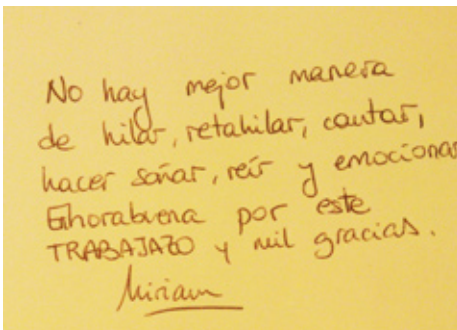 No hay mejor manera
de hilar, retahilar, contar,
hacer soñar, reír y emocionar
Enhorabuena por este
TRABAJAZO y mil gracias.
Miriam